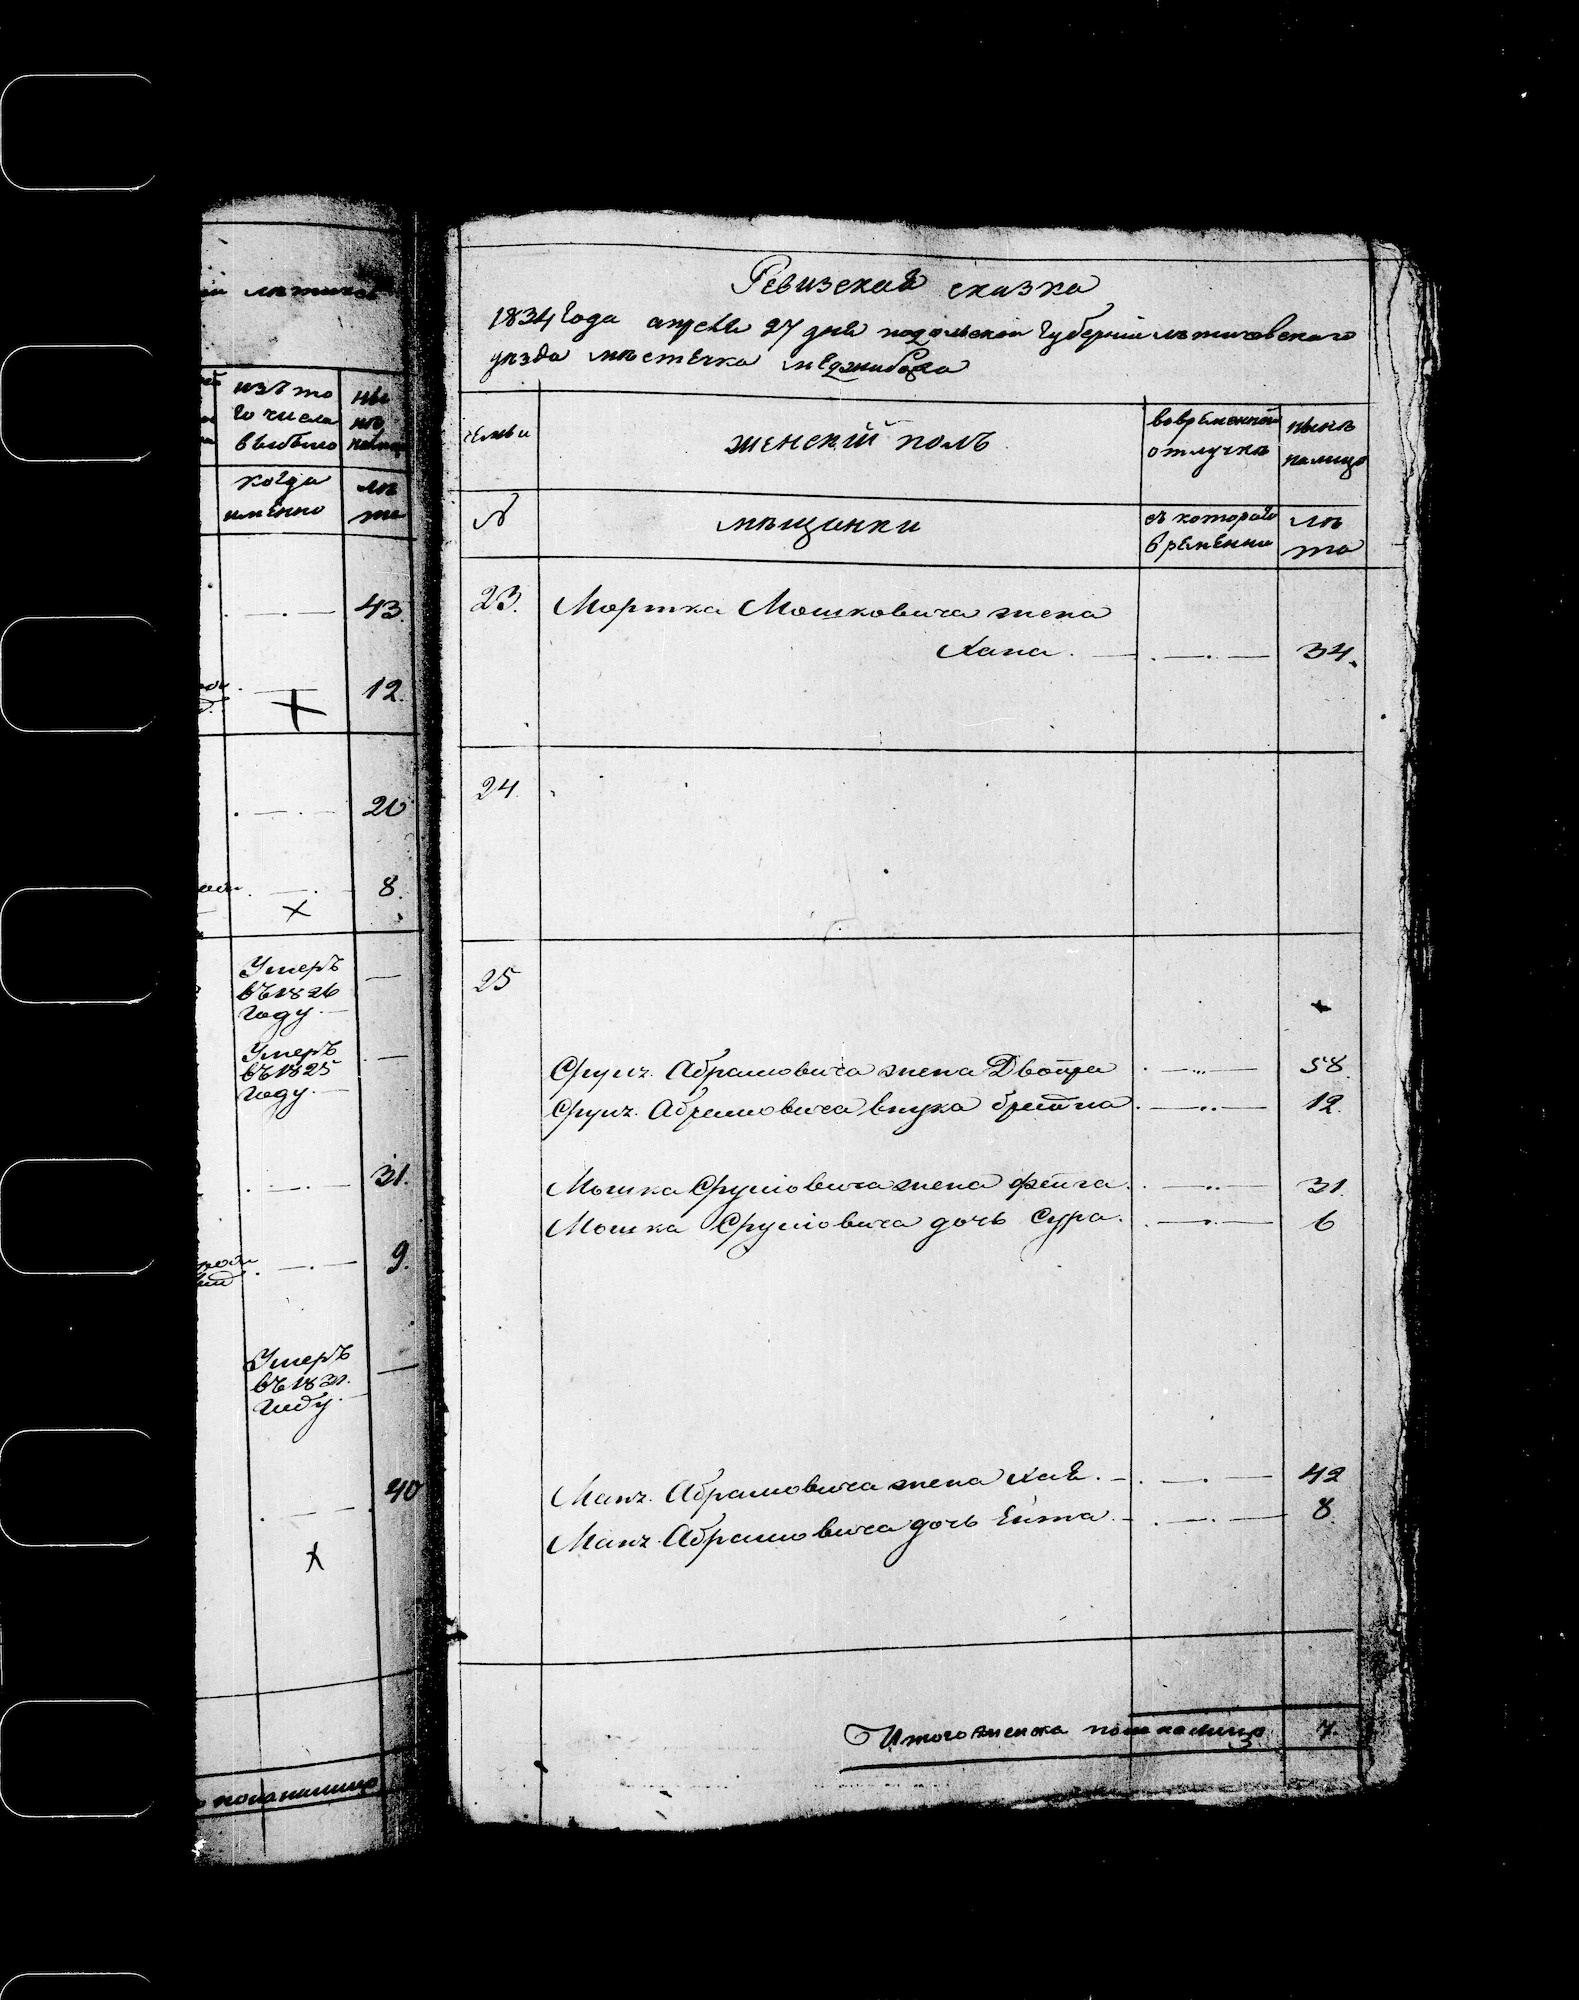 лѣтичов
изъ то
го числа
выбыло
ны
нѣ
когда
именно
лѣ
та
43.
12.
20
8.
Умеръ
въ 1826
году.
Умеръ
въ 1825
году.
31.
9.
Умеръ
въ 1831.
году.
40
пола налицо
Ревизская сказка
1834 года апреля 27 дня подольской губерніи лѣтичовскаго
уѣзда мѣстечка меджибожа
семьи
женскій полъ
вовременной
отлучкѣ
нынѣ
налицо
№
мѣщанки
съ котораго
временни
лѣ
та
23.
Мортка Мошковича жена
Хана.
34.
24.
25
Срулъ Абрамовича жена Двойра
58.
Срулъ Абрамовича внука брейна
12.
Мошка Сруліовича жена фейга.
31.
Мошка Сруліовича дочь Сура.
6
Манъ Абрамовича жена Хая.
42
Манъ Абрамовича дочь Ейта
8.
Итого женска пола налицо
7.